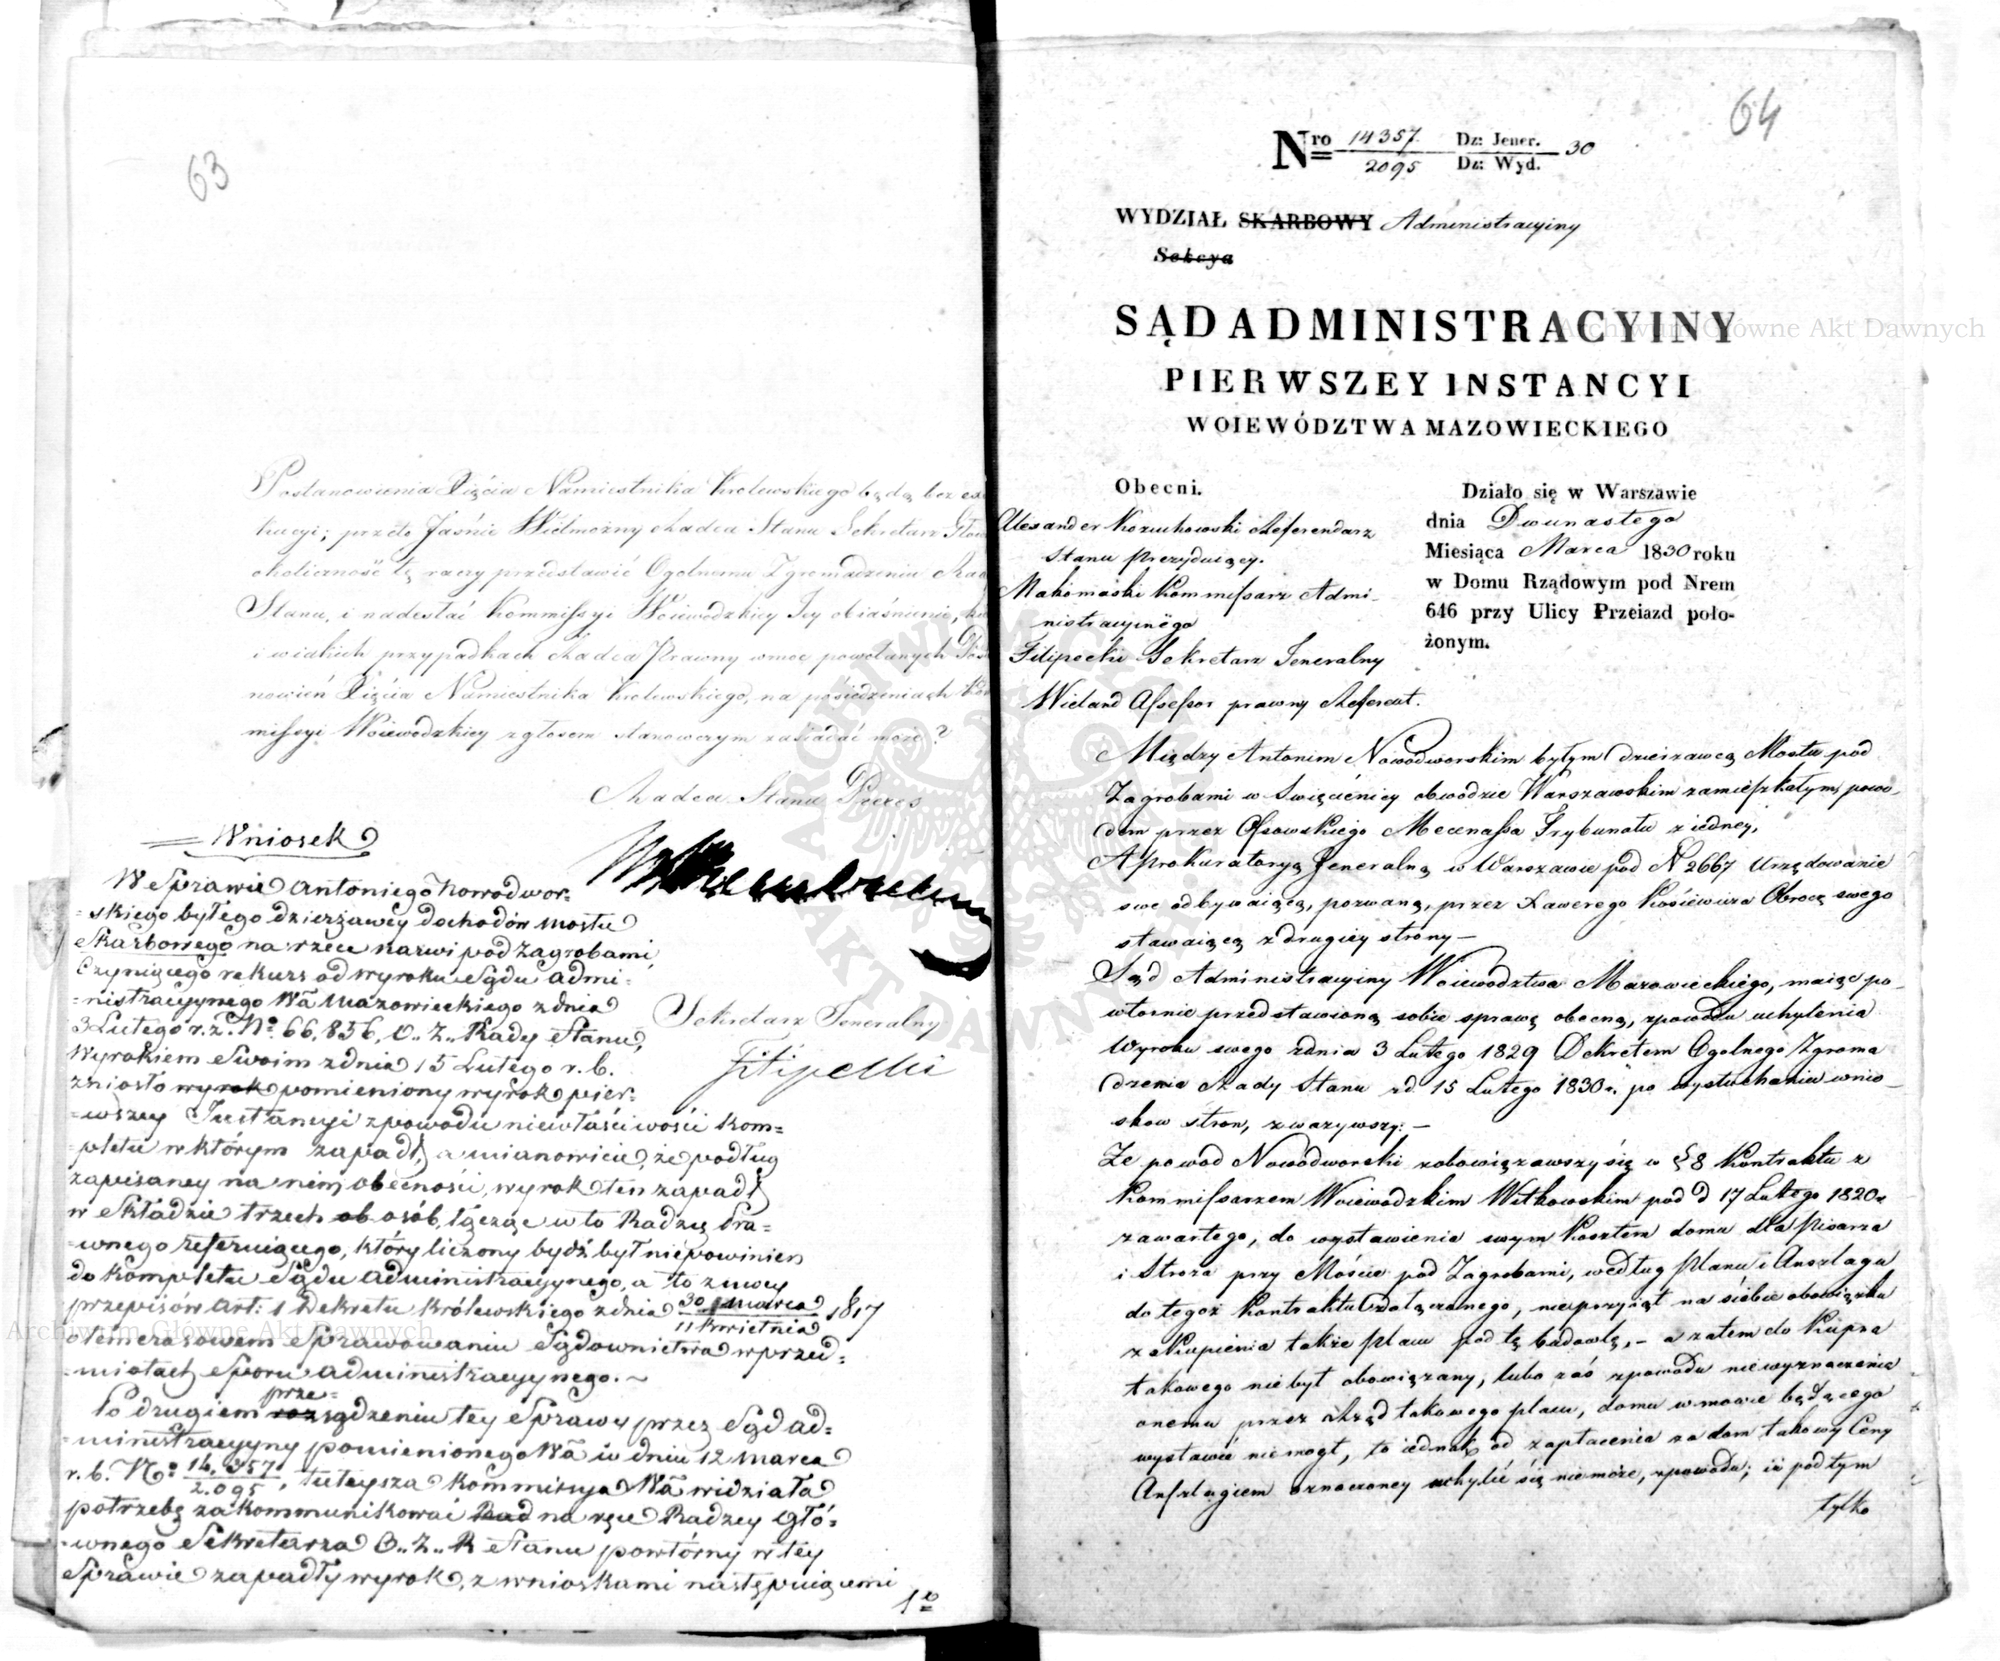 63
Postanowienia Xięcia Namiestnika Krolewskiego będą bez exe
kucyi; przeto Jaśnie Wielmożny Radca Stanu Sekretarz Głow
okoliczność tę raczy przedstawić Ogolnemu Zgromadzeniu Rad
Stanu, i nadesłać Kommissyi Woiewodzkiey Jey obiaśnienie,
i w iakich przypadkach Radca Prawny w moc powołanych Post
nowień Xięcia Namiestnika Krolewskiego, na posiedzeniach Kom
missyi Woiewodzkiey z głosem stanowczym zasiadać może?
Radca Stanu Prezes
Wniosek
W Sprawie Antoniego Nowodwor=
=skiego byłego dzierżawcy dochodów mostu
Skarbowego na rzece Narwi pod Zagrobami,
Czyniącego rekurs od wyroku Sądu Admi=
=nistracyynego Wa Mazowieckiego z dnia
3 Lutego r. z. No 66,836, O. Z. Rady Stanu,
Wyrokiem Swoim z dnia 15 Lutego r. b.
zniosło wyrok pomieniony wyrok pier=
=wszey Instancyi z powodu niewłaściwości kom=
=pletu w którym zapadł, a mianowicie, że podług
zapisaney na nim obecności, wyrok ten zapadł
w Składzie trzech ob osób, łącząc w to Radzcę Pra=
=wnego referuiącego, który liczony bydź był niepowinien
do kompletu Sądu Administracyynego, a to z mocy
przepisów Art: 1 Dekretu Królewskiego z dnia 30 Marca / 11 Kwietnia 1817
o temczasowem Sprawowaniu Sądownictwa w przed=
=miotach Sporu administracyynego.~
Po drugiem roz prze= sądzeniu tey Sprawy przez Sąd ad=
=ministracyyny pomienionego Wa w dniu 12 marca
r. b. No: 14,357 / 2.095, tuteysza Kommissya Wa widziała
potrzebę zakommunikować Rad na ręce Radzcy Głó=
=wnego Sekretarza O. Z. R Stanu powtórny w tey
Sprawie zapadły wyrok, z wnioskami następuiącemi
1o
Sekretarz Jeneralny
Filipecki
64
Nro 14357 / 2095 Dz: Jener. / Dz: Wyd. 30
WYDZIAŁ SKARBOWY Administracyiny
Sekcya
SĄD ADMINISTRACYINY
PIERWSZEY INSTANCYI
WOIEWÓDZTWA MAZOWIECKIEGO
Obecni.
Alexander Kozuchowski Referendarz
Stanu Prezyduiący.
Makomaski Kommissarz Admi-
nistracyinego
Filipecki Sekretarz Jeneralny
Wieland Assessor prawny Referent.
Działo się w Warszawie
dnia Dwunastego
Miesiąca Marca 1830 roku
w Domu Rządowym pod Nrem
646 przy Ulicy Przeiazd poło-
żonym.
Między Antonim Nowodworskim byłym dzierzawcą Mostu pod
Zagrobami w Swięcienicy obwodzie Warszawskim zamieszkałym, powo-
dem przez Ossowskiego Mecenassa Trybunału z iedney,
A Prokuratoryą Jeneralną w Warszawie pod N 2667 Urzędowanie
swe odbywaiącą, pozwaną, przez Xawerego Kosiewicza Obrocę swego
stawaiącą z drugiey strony –
Sąd Administracyiny Woiewodztwa Mazowieckiego, maiąc po-
wtornie przedstawioną sobie sprawę obecną, z powodu uchylenia
Wyroku swego z dnia 3 Lutego 1829 Dekretem Ogolnego Zgroma
dzenia Rady Stanu z d 15 Lutego 1830 r. po wysłuchaniu wnio-
skow stron, zwazywszy: –
Ze powod Nowodworski zobowiązawszy się w § 8 Kontraktu z
Kommissarzem Woiewodzkim Witkowskim pod d 17 Lutego 1820 r
zawartego, do wystawienia swym kosztem domu dla Pisarza
i Stroza przy Moście pod Zagrobami, według Planu i Anszlagu
do tegoż Kontraktu załączonego, nie przyiął na siebie obowiązku
zakupienia także Placu pod tę budowlę, – a zatem do kupna
takowego nie był obowiązany, lubo zaś z powodu niewyznaczenia
onemu przez Rząd takowego placu, domu w mowie będącego
wystawić nie mogł, to iednak od zapłacenia za dom takowy Ceny
Anszlagiem oznaczoney uchylić się nie może, z powodu; iż pod tym
tylko
Archiwum Główne Akt Dawnych
Archiwum Główne Akt Dawnych
ARCHIWUM GŁÓWNE AKT DAWNYCH